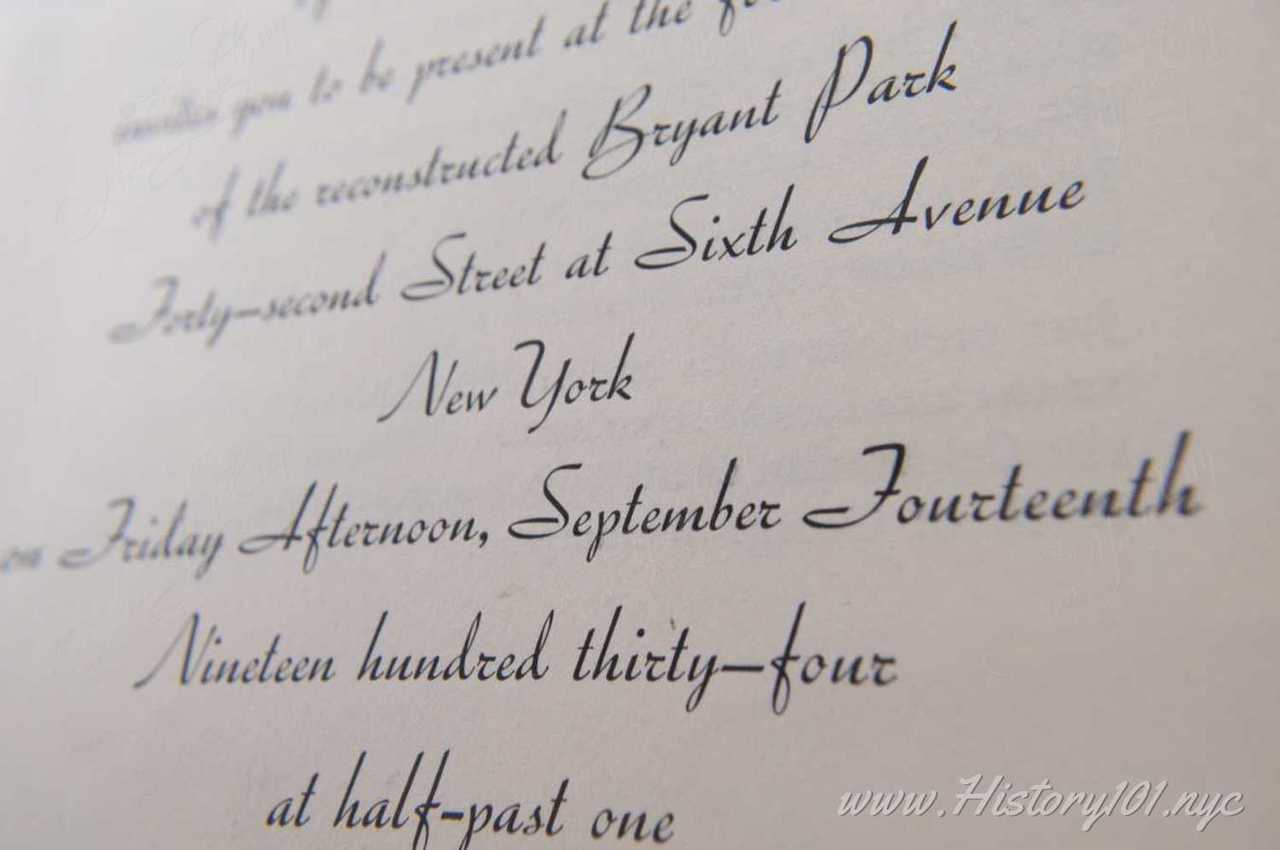 invites you to be present at the
of the reconstructed Bryant Park
Forty-second Street at Sixth Avenue
New York
on Friday Afternoon, September Fourteenth
Nineteen hundred thirty-four
at half-past one
www.History101.nyc